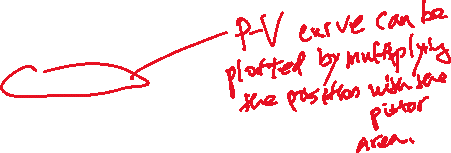 P-V curve can be
plotted by multiplying
the position with the
piston
area.